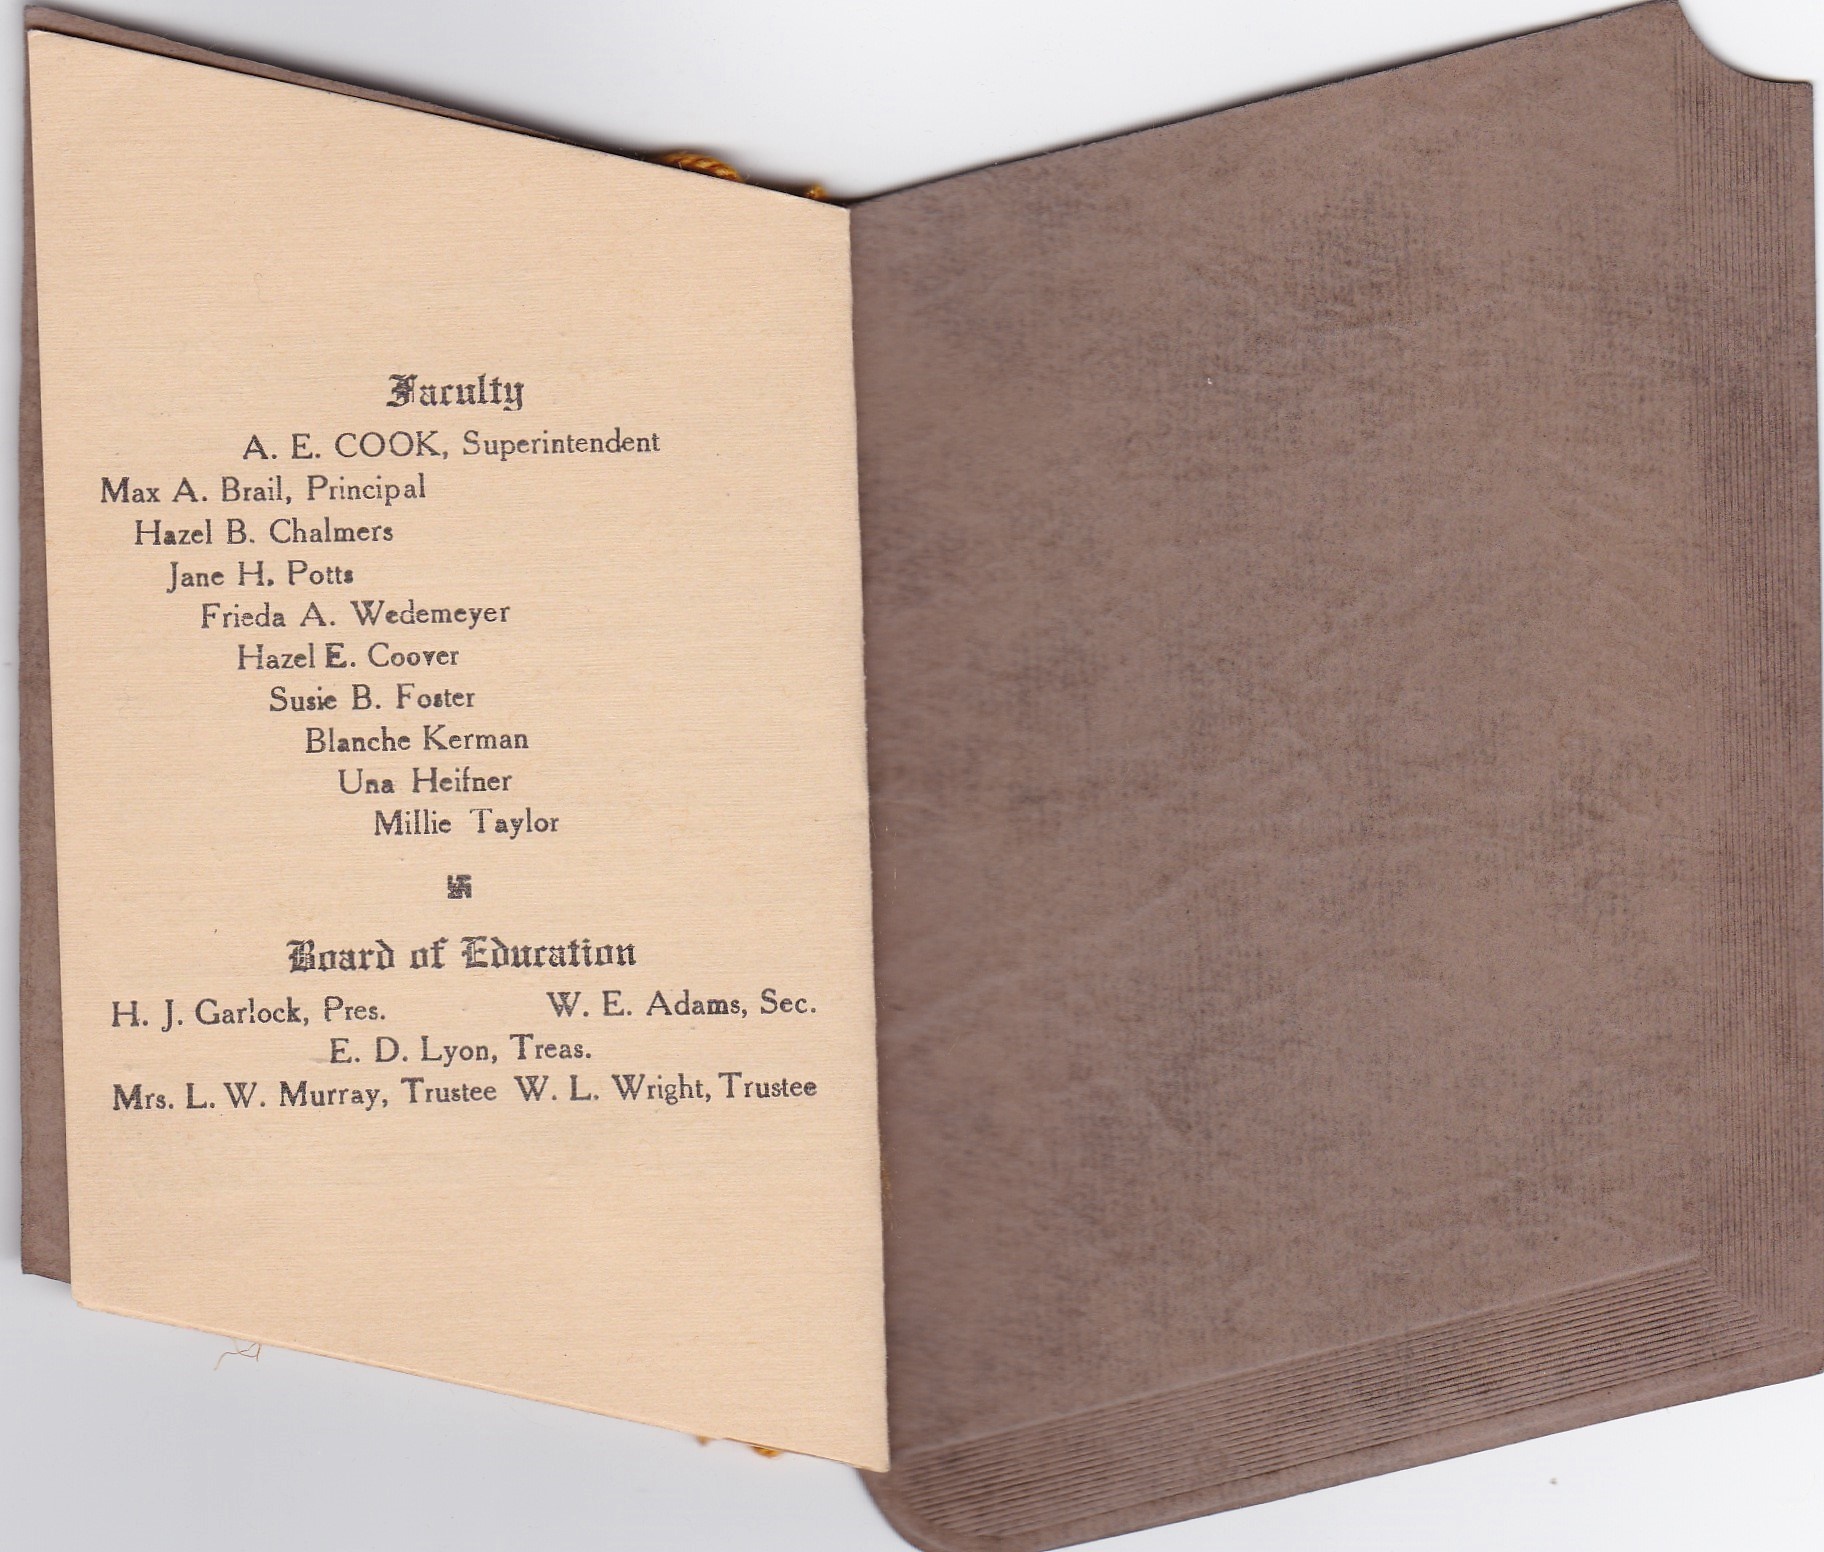 Faculty
A. E. COOK, Superintendent
Max A. Brail, Principal
Hazel B. Chalmers
Jane H. Potts
Frieda A. Wedemeyer
Hazel E. Coover
Susie B. Foster
Blanche Kerman
Una Heifner
Millie Taylor
卐
Board of Education
H. J. Garlock, Pres. W. E. Adams, Sec.
E. D. Lyon, Treas.
Mrs. L. W. Murray, Trustee W. L. Wright, Trustee